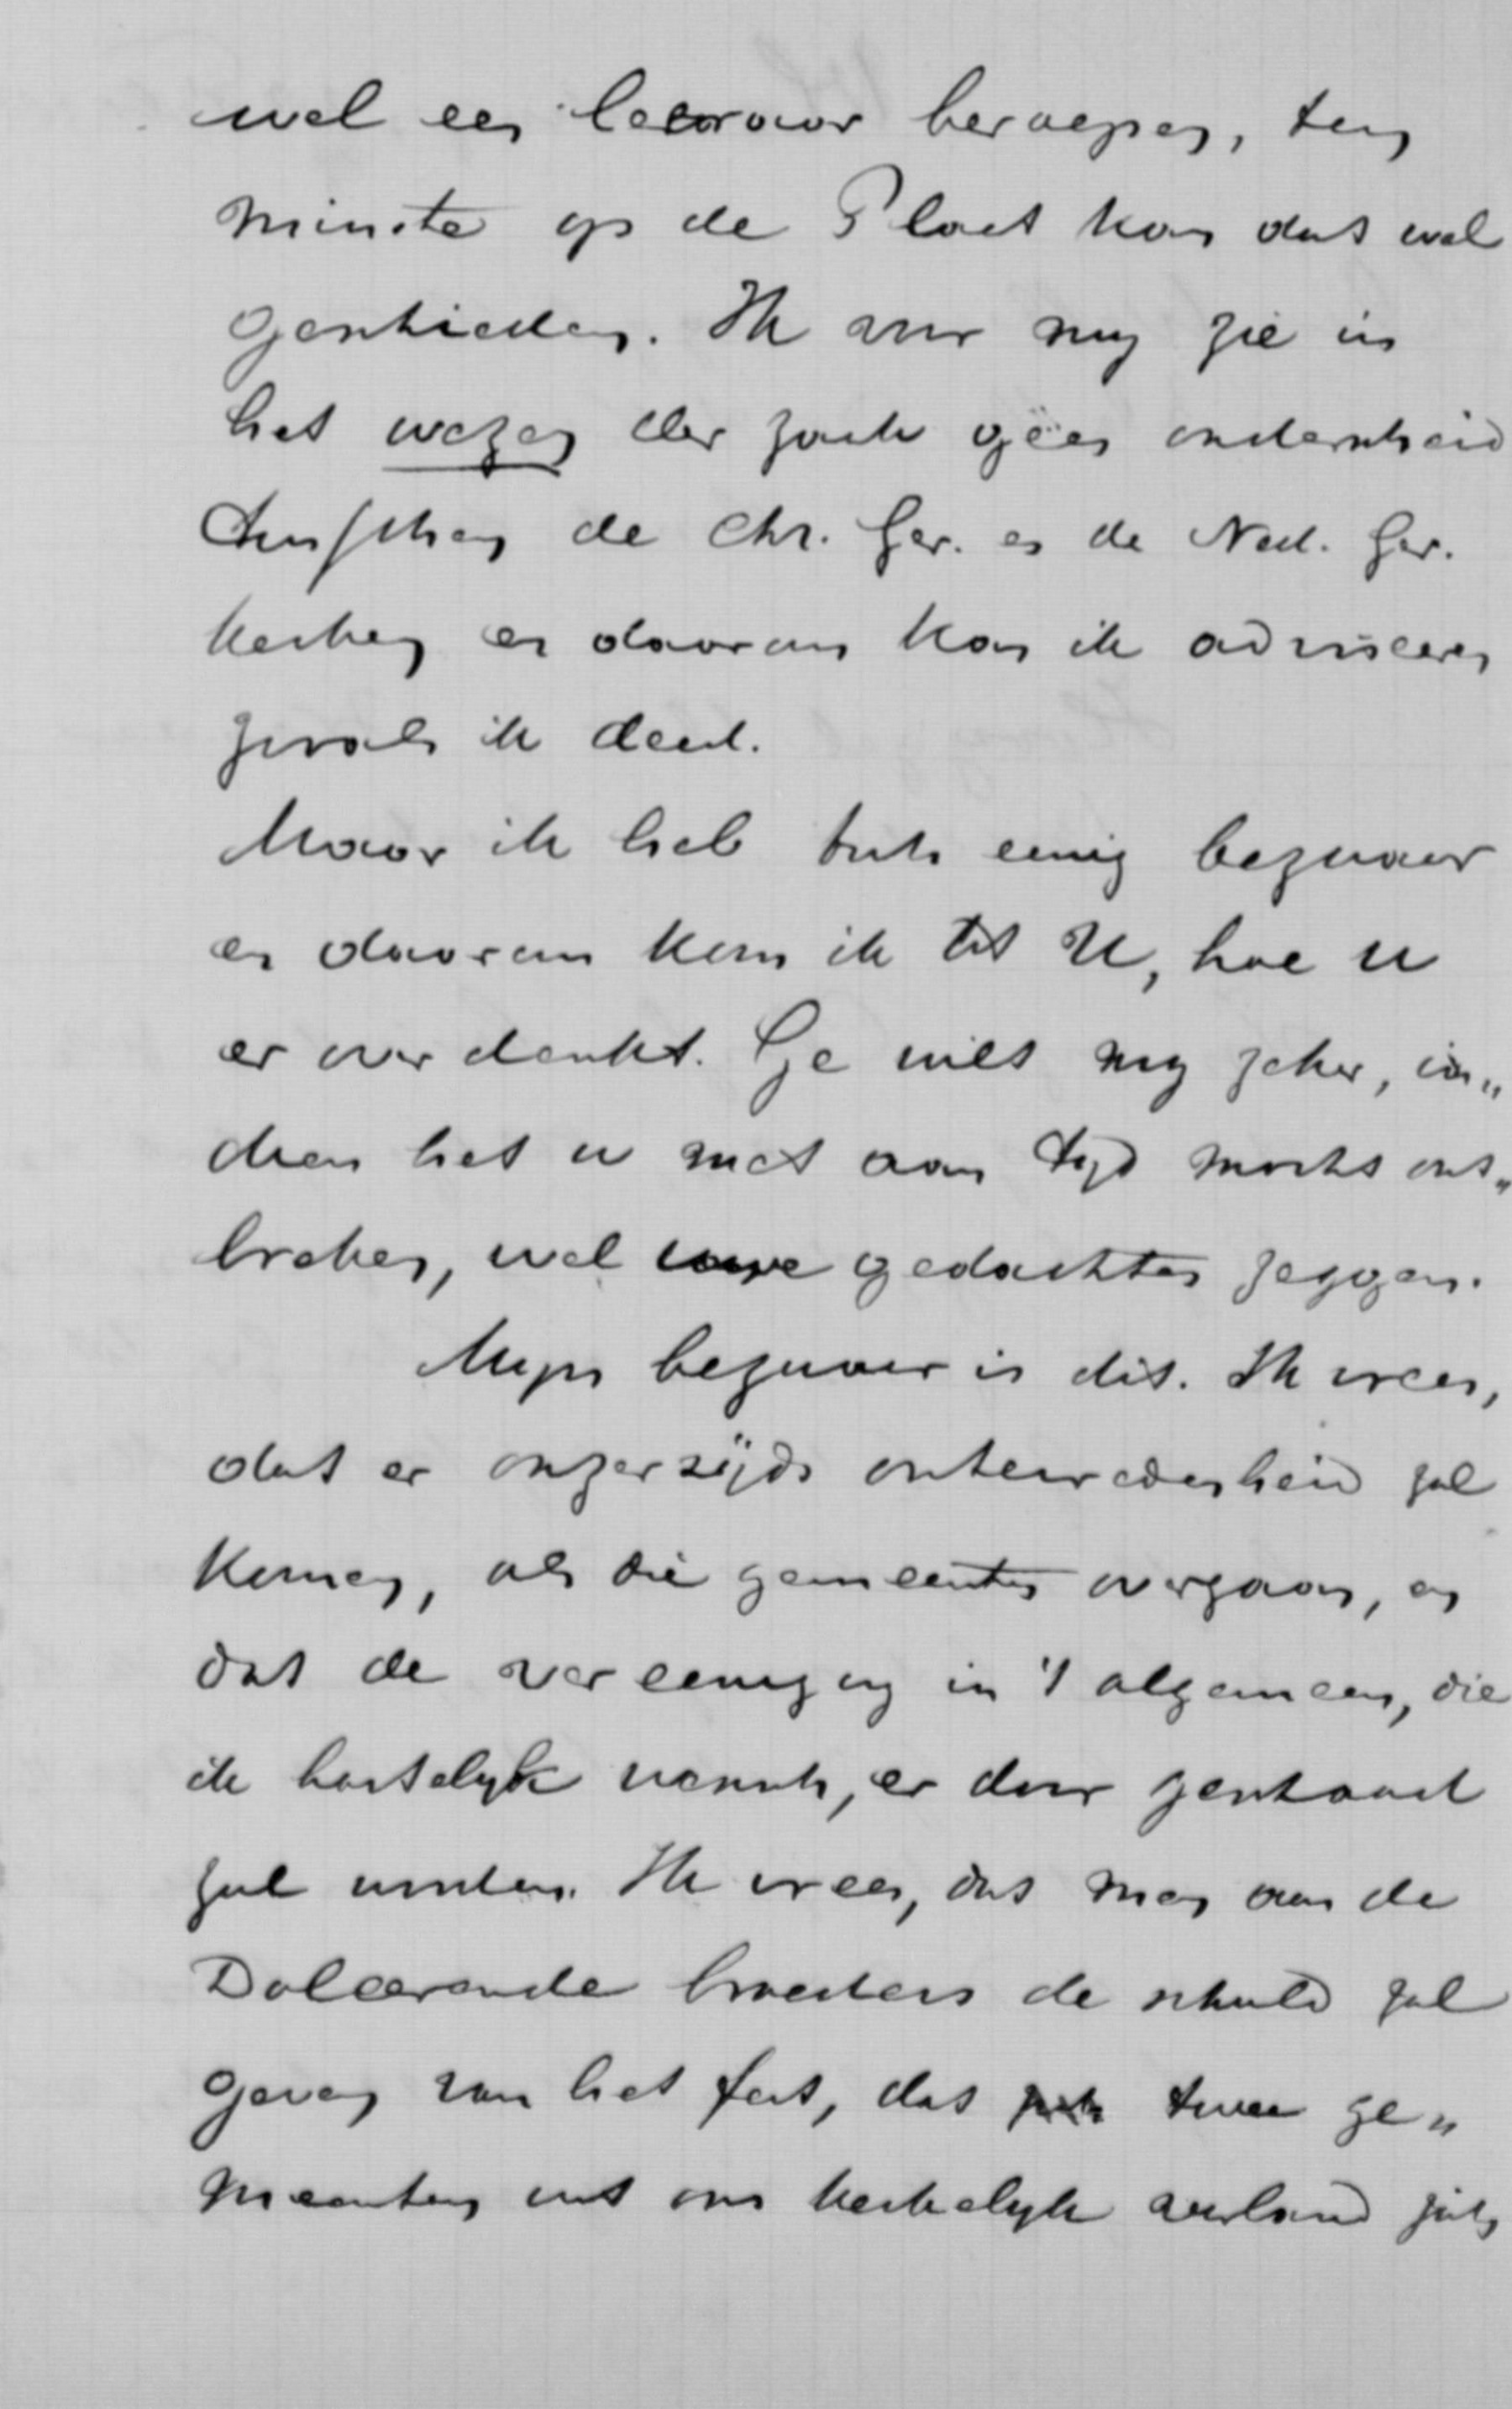 wel een leeraar beroepen, ten
minste op de Plaat kan dat wel
geschieden. Ik voor mij zie in
het wezen der zaak géén onderscheid
tusschen de Chr. Ger. en de Ned. Ger.
kerken en daarom kan ik adviseeren
zooals ik deed.
Maar ik heb toch eenig bezwaar
en daarom kom ik tot U, hoe u
er over denkt. Ge wilt mij zeker, in„
dien het u niet aan tijd mocht ont„
breken, wel uwe gedachten zeggen.
Mijn bezwaar is dit. Ik vrees,
dat er onzerzijds ontevredenheid zal
komen, als die gemeenten overgaan, en
dat de vereeniging in 't algemeen, die
ik hartelijk wensch, er door geschaad
zal worden. Ik vrees, dat men aan de
Doleerende broeders de schuld zal
geven van het feit, dat twee ge„
meenten uit ons kerkelijk verband zich